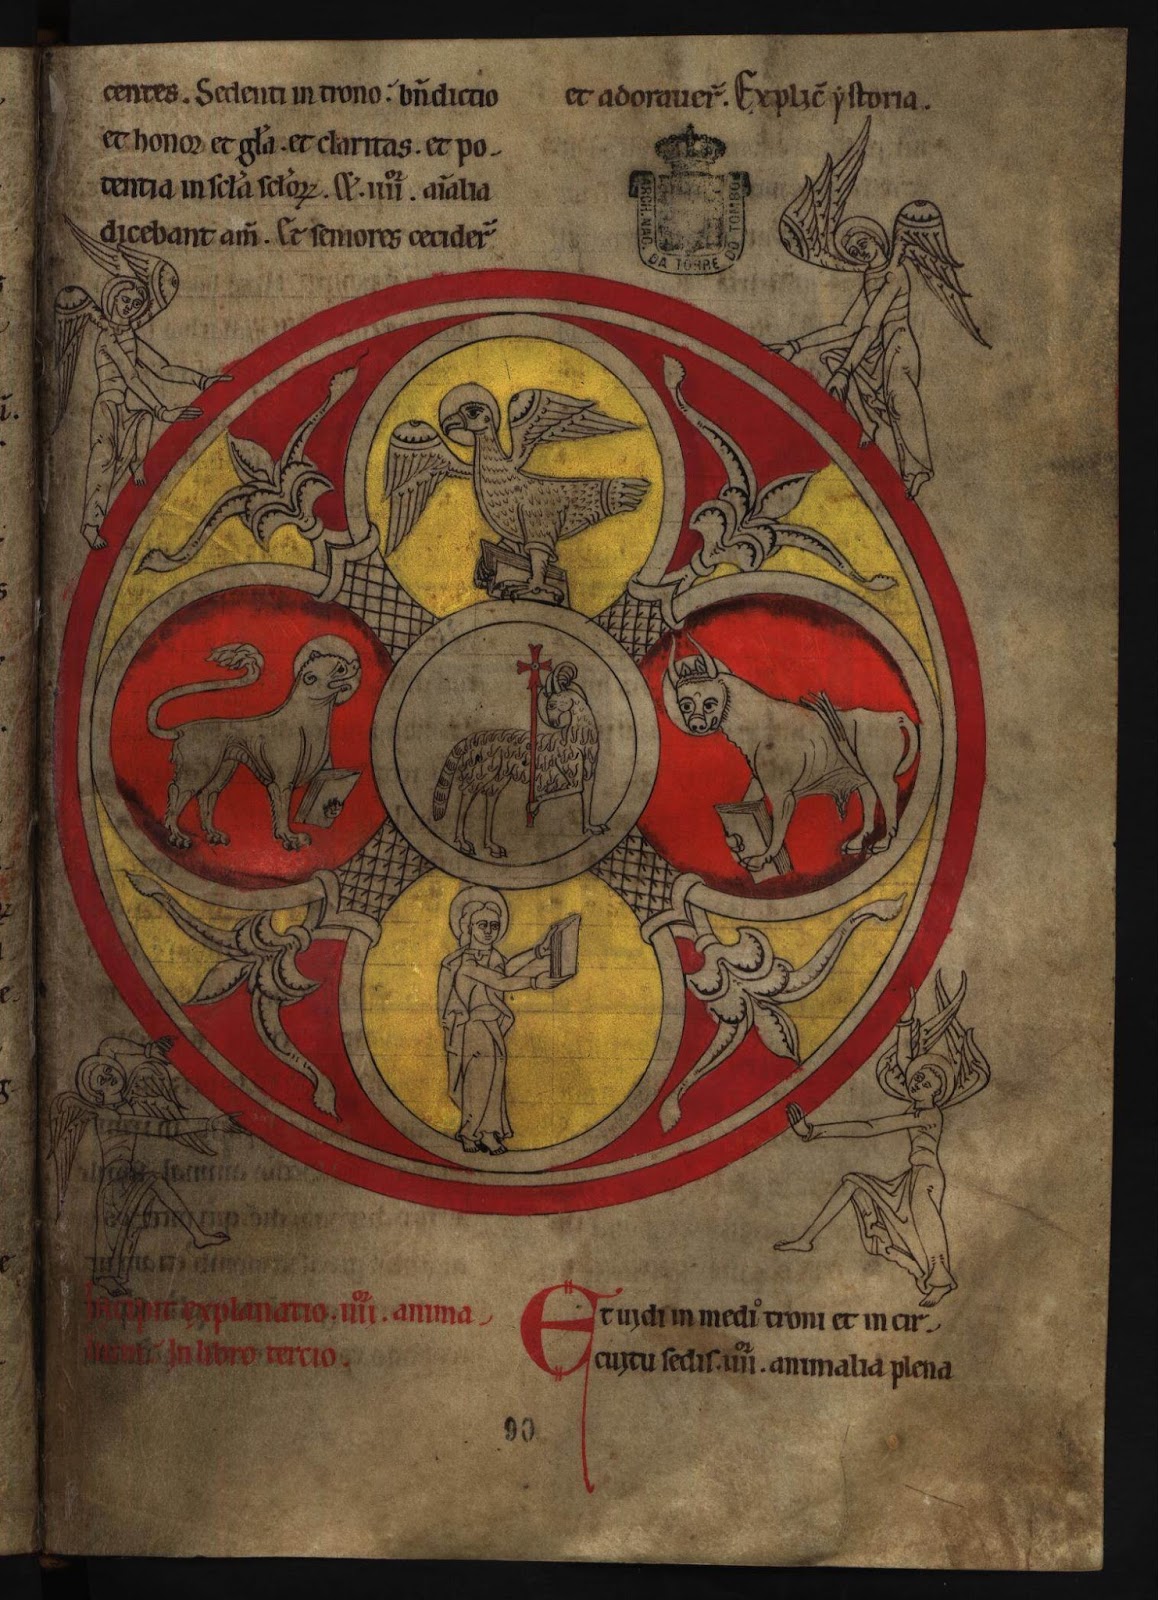 centes. Sedenti in trono: bñdictio
et honor et gła. et claritas. et po-
tentia in scła scłorꝝ. Et .iiiior. aīalia
dicebant am̄. Et seniores cecider̄
et adorauer̄. Explic̄ ystoria.
ARCH. NAC. DA TORRE DO TOMBO
Incipit explanatio .iiiior. anima-
lium. In libro tercio.
Et uidi in medio troni et in cir-
cuitu sedis .iiiior. animalia plena
90